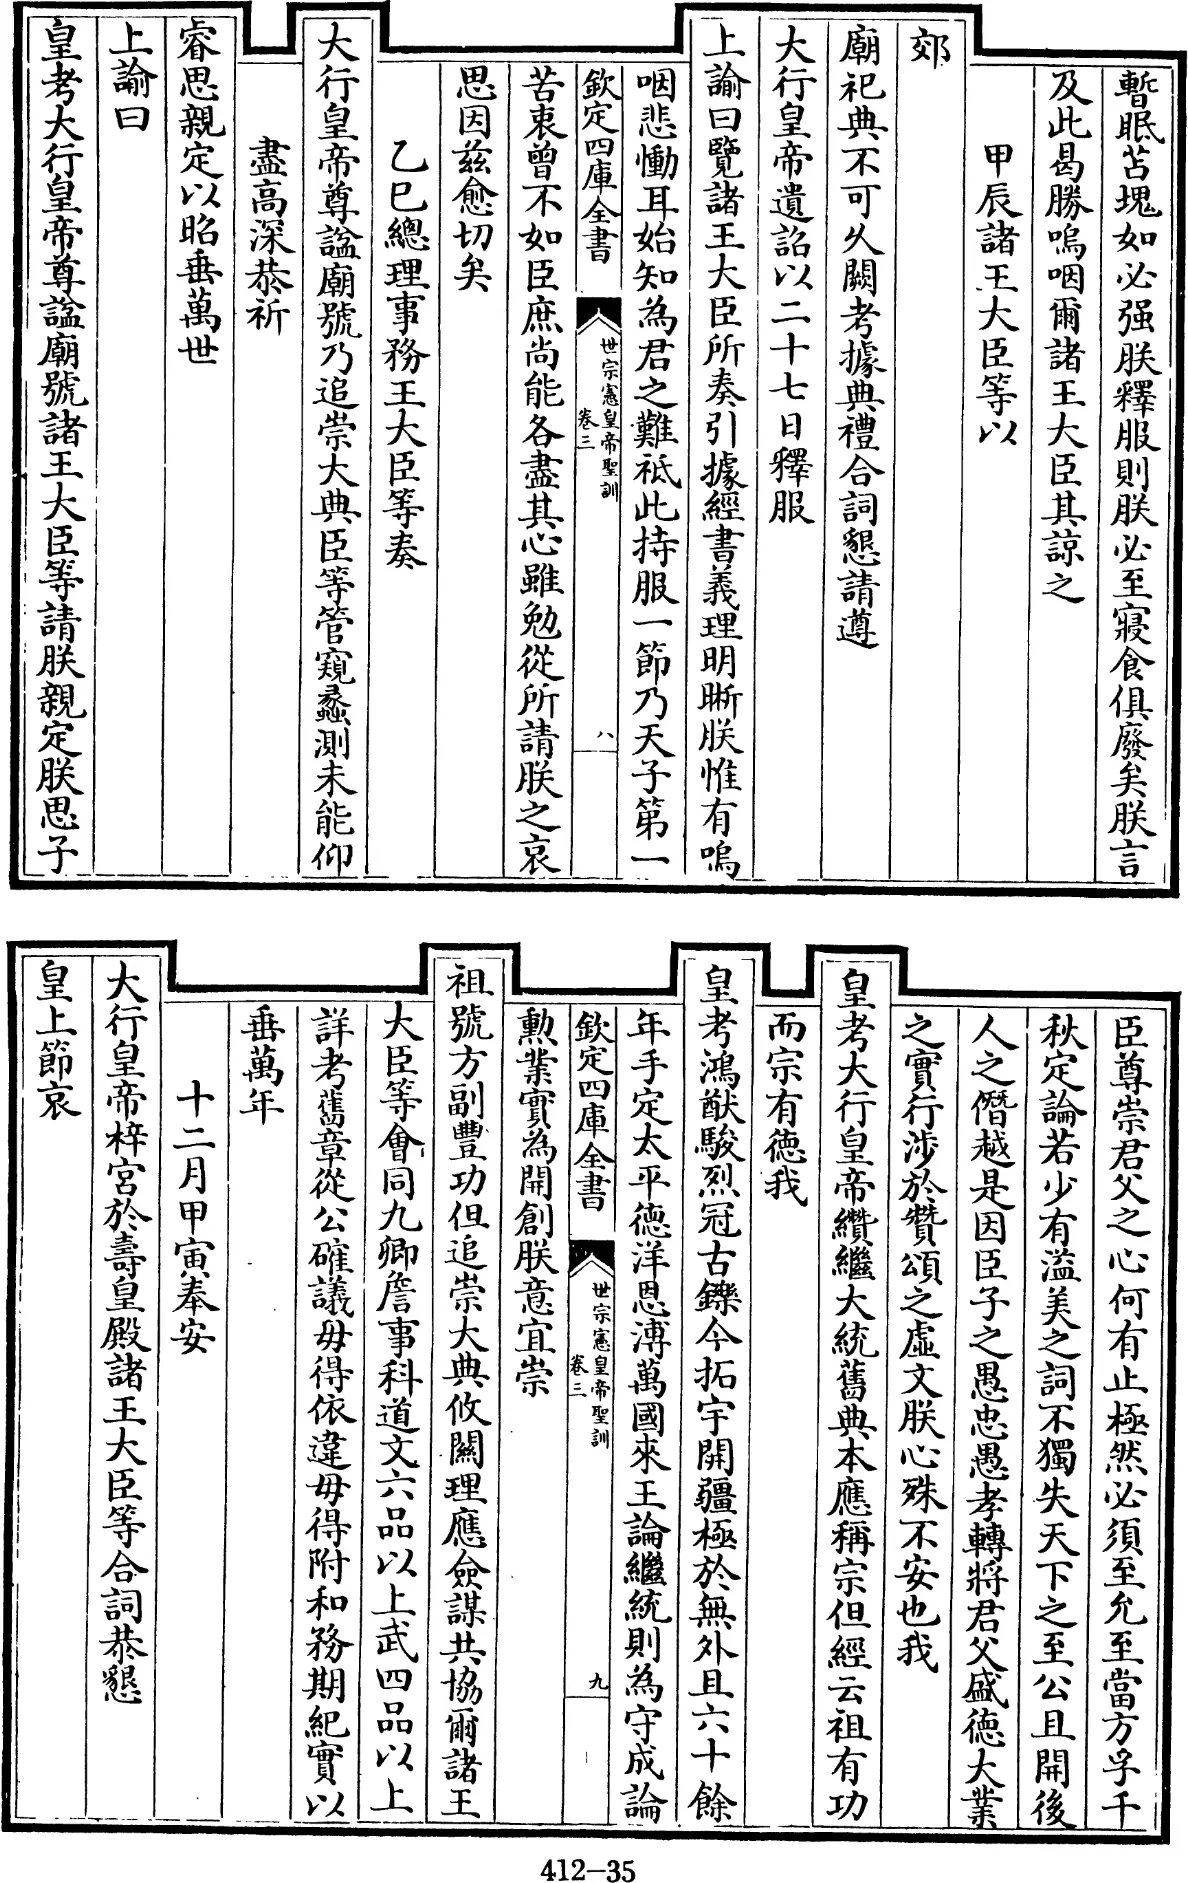 暫眠苫塊如必强朕釋服則朕必至寢食俱廢矣朕言
及此曷勝嗚咽爾諸王大臣其諒之
甲辰諸王大臣等以
郊
廟祀典不可久闕考據典禮合詞懇請遵
大行皇帝遺詔以二十七日釋服
上諭曰覽諸王大臣所奏引據經書義理明晰朕惟有嗚
咽悲慟耳始知為君之難祗此持服一節乃天子第一
欽定四庫全書
世宗憲皇帝聖訓
卷三
八
苦衷曾不如臣庶尚能各盡其心雖勉從所請朕之哀
思因兹愈切矣
乙巳總理事務王大臣等奏
大行皇帝尊諡廟號乃追崇大典臣等管窺蠡測未能仰
盡高深恭祈
睿思親定以昭垂萬世
上諭曰
皇考大行皇帝尊諡廟號諸王大臣等請朕親定朕思子
臣尊崇君父之心何有止極然必須至允至當方孚千
秋定論若少有溢美之詞不獨失天下之至公且開後
人之僭越是因臣子之愚忠愚孝轉將君父盛德大業
之實行涉於贊頌之虛文朕心殊不安也我
皇考大行皇帝纘繼大統舊典本應稱宗但經云祖有功
而宗有德我
皇考鴻猷駿烈冠古鑠今拓宇開疆極於無外且六十餘
年手定太平德洋恩溥萬國來王論繼統則為守成論
欽定四庫全書
世宗憲皇帝聖訓
卷三
九
勲業實為開創朕意宜崇
祖號方副豐功但追崇大典攸關理應僉謀共協爾諸王
大臣等會同九卿詹事科道文六品以上武四品以上
詳考舊章從公確議毋得依違毋得附和務期紀實以
垂萬年
十二月甲寅奉安
大行皇帝梓宮於壽皇殿諸王大臣等合詞恭懇
皇上節哀
412-35